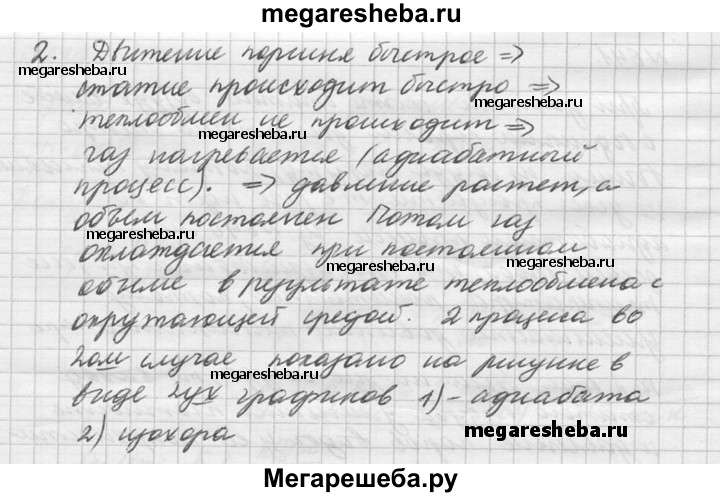 megaresheba.ru
2. Движение поршня быстрое =>
megaresheba.ru
megaresheba.ru
сжатие происходит быстро =>
теплообмен не происходит =>
megaresheba.ru
газ нагревается (адиабатный
процесс). => давление растет, а
megaresheba.ru
объем постоянен Потом газ
megaresheba.ru
охлаждается при постоянном
megaresheba.ru
объеме в результате теплообмена с
окружающей средой. 2 процесса во
2ом случае показано на рисунке в
megaresheba.ru
виде 2ух графиков 1) - адиабата
2) изохора
megaresheba.ru
Мегарешеба.ру